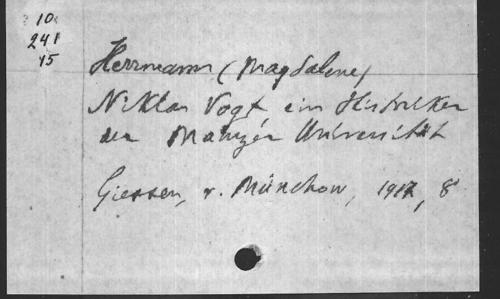 10
241
15
Herrmann (Magdalene)
Niklas Vogt ein Historiker
der Mainzer Universität
Giessen, v. Münchow, 1917, 8°